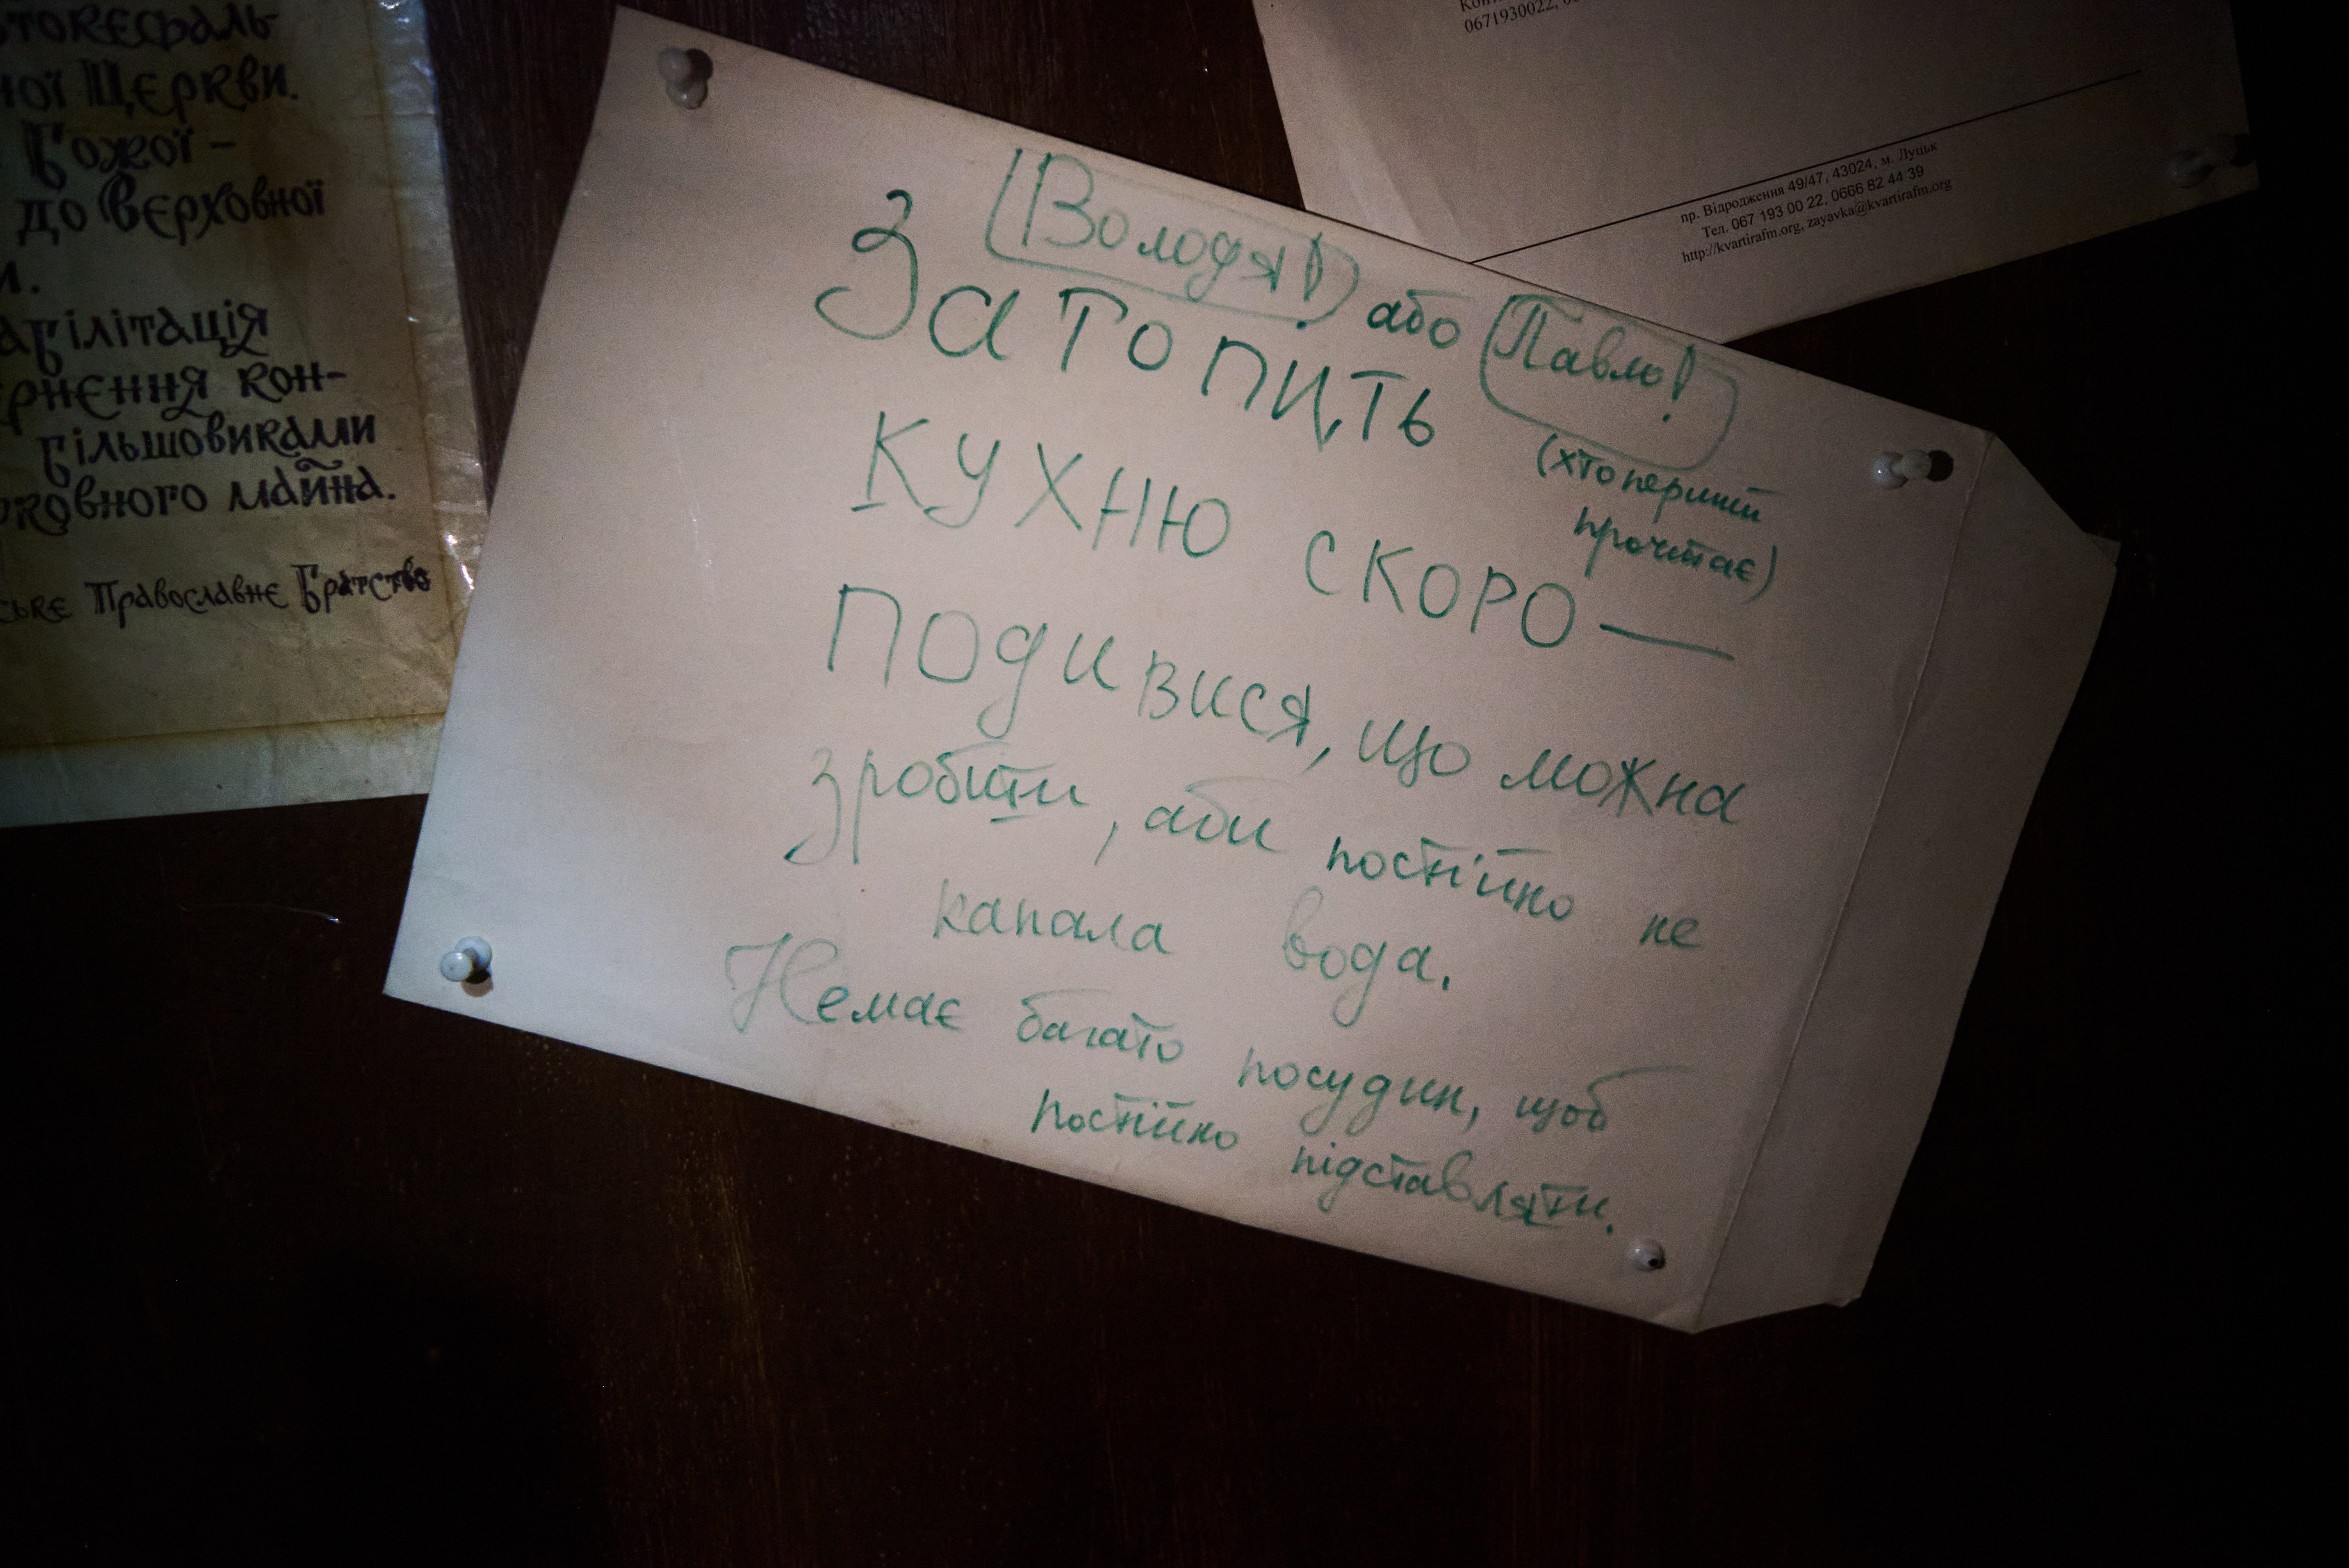 ної Церкви.
Божої –
до Верховної
більшовиками
майна.
Православнє Братство
0671930022,
пр. Відродження 49/47, 43024, м. Луцьк
Тел. 067 193 00 22, 0666 82 44 39
http://kvartirafm.org, zayavka@kvartirafm.org
Володя! або Павло!
(хто перший
прочитає)
Затопить
кухню скоро —
подивися, що можна
зробити, аби постійно не
капала вода.
Немає багато посудин, щоб
постійно підставляти.